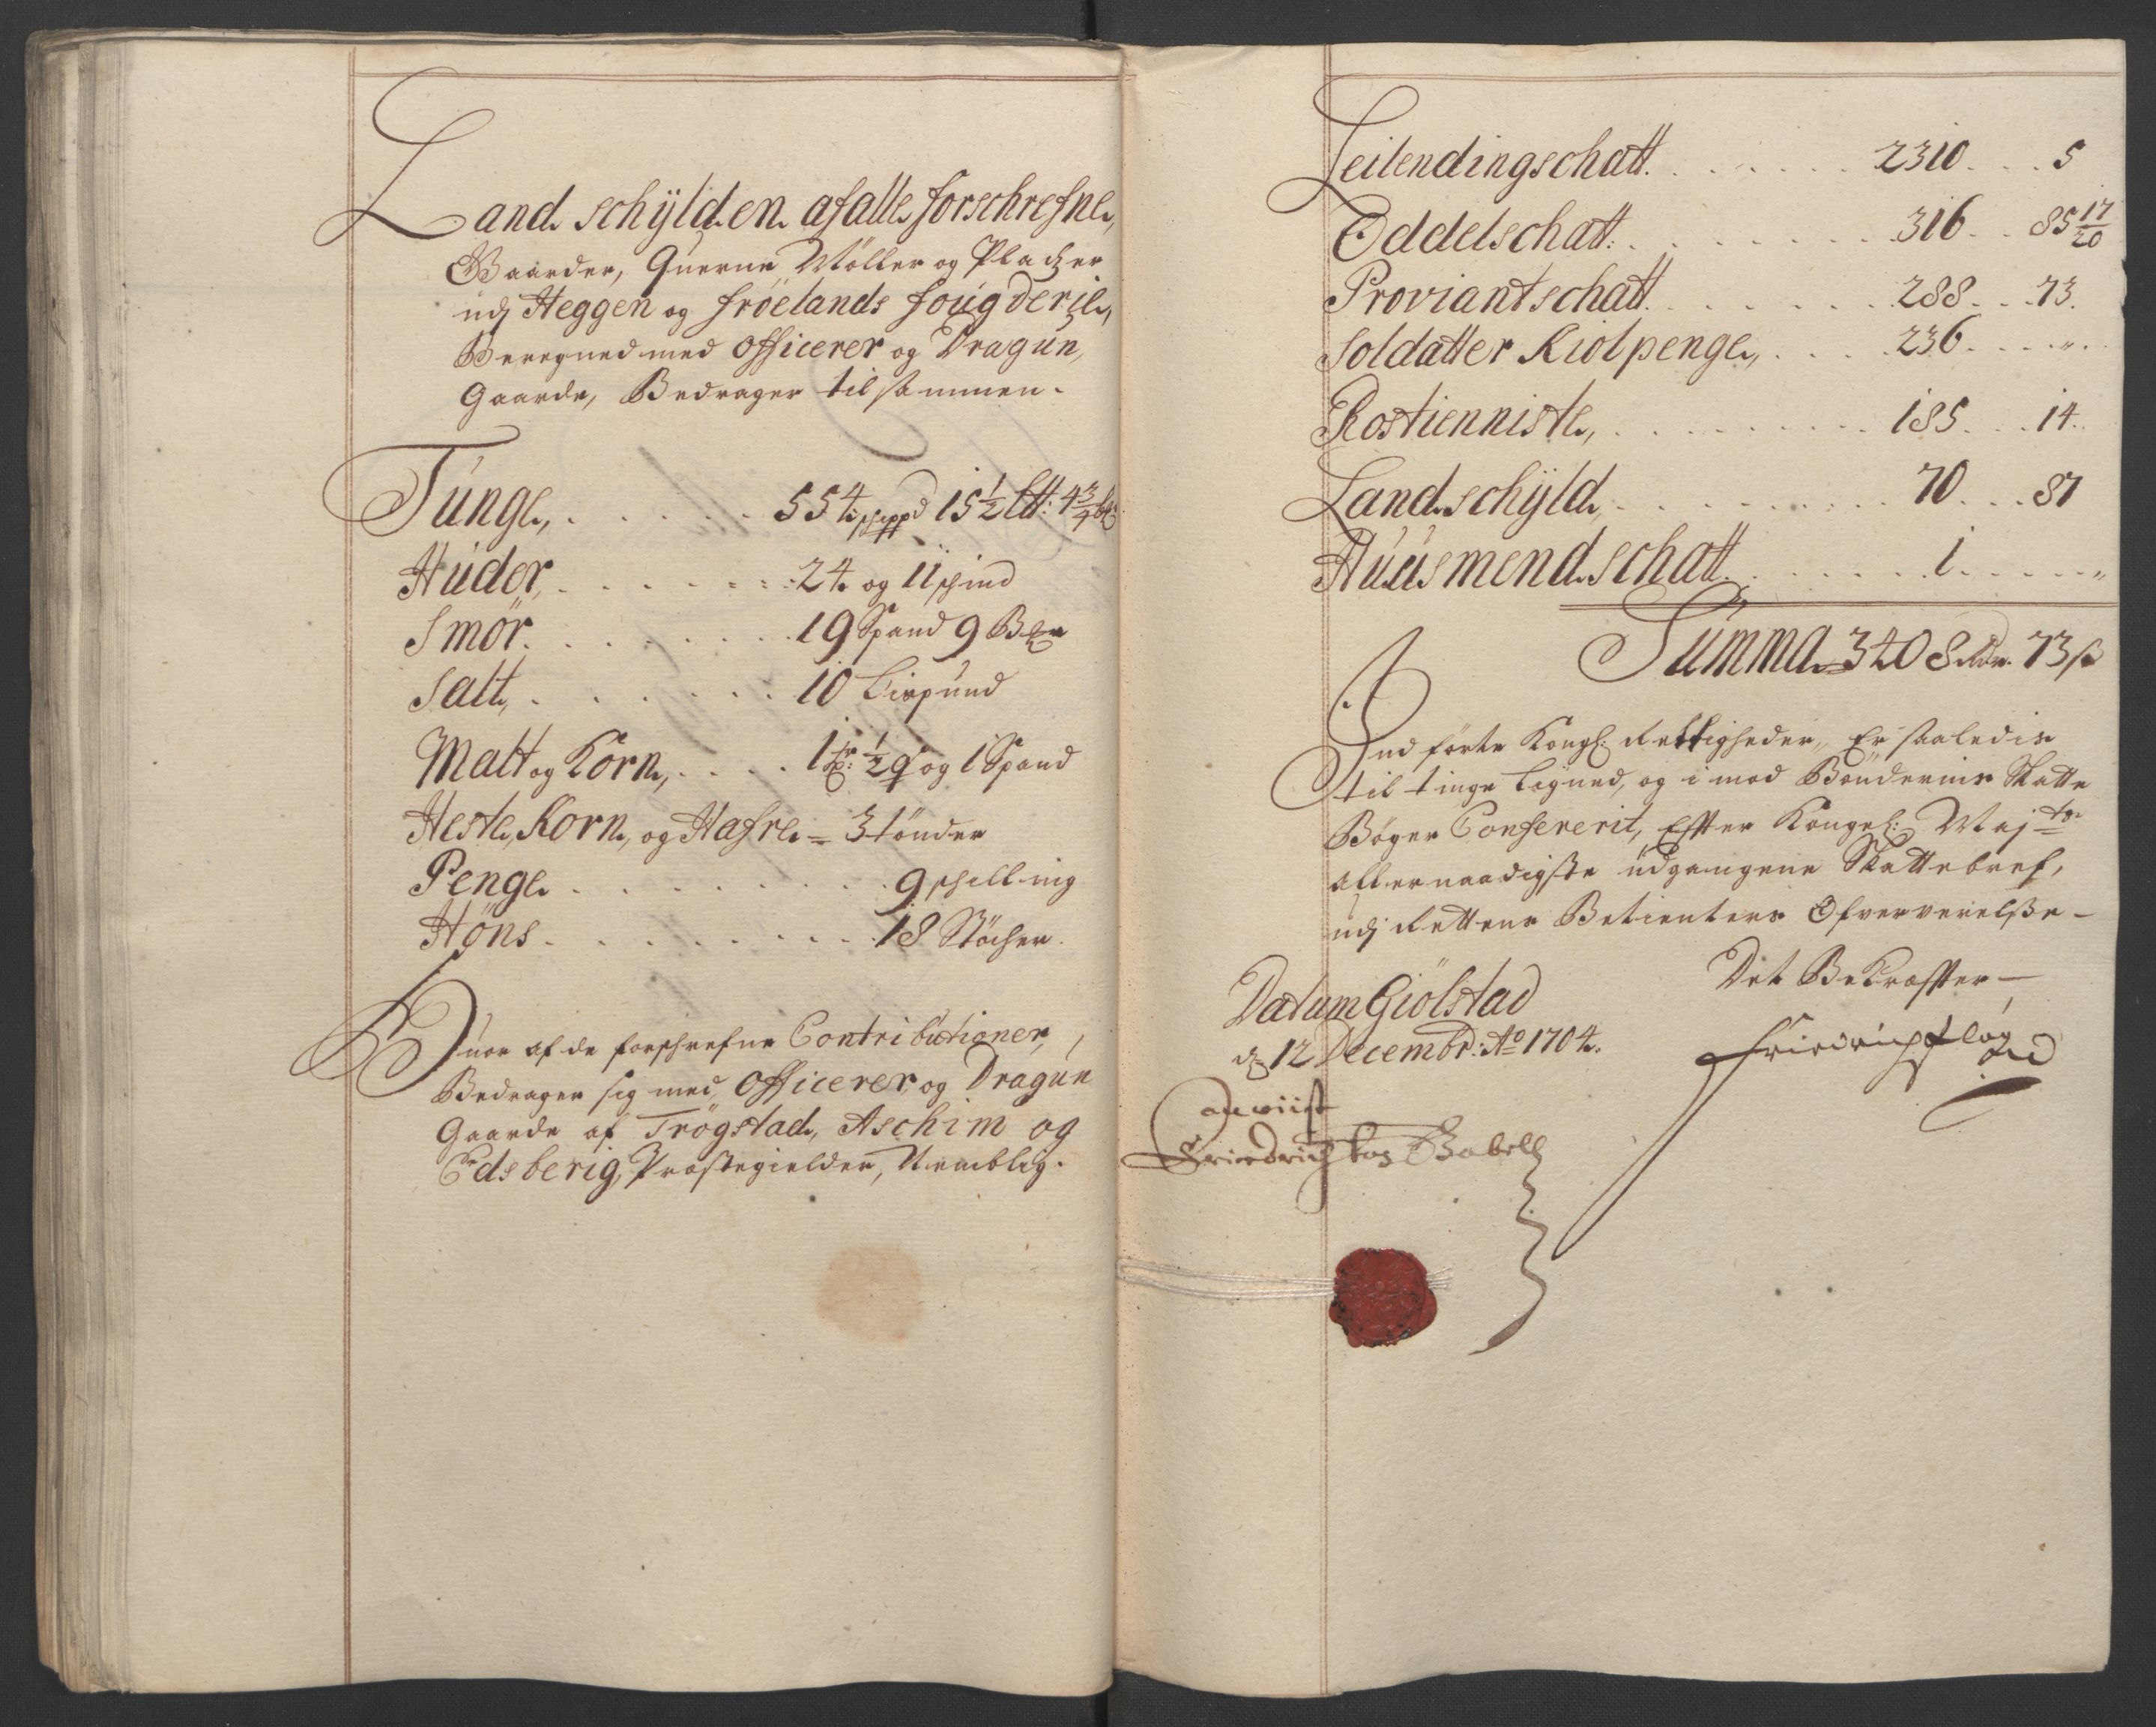 Landschÿlden af alle forschrefne,
Gaarder, Querne Møller og Pladtzer
udj Heggen og frøelands fougderie,
Beregned med Officerer og Dragun,
Gaarde, Bedrager til sammen.
Tunge, . . . . . . 554 schippd 15½ Ltt: 4¾ 
Huder, . . . . . . 24 og 11 schind
Smör. . . . . . . . 19 Spand 9 
Salt, . . . . . . . 10 Lispund
Malt og Korn, . . . . 1 tr: ½ q og 1 Spand
Heste, Korn, og Hafre = 3 tönder
Penge . . . . . . . . 9 schelling
Höns . . . . . . . . . 18 Støcher.
Huor af de forschrefne Contributioner,
Bedrager sig med Officerer, og Dragun
Gaarde af Trögstad, Aschim og
Edsberig, Prestegielder, Nemblig.
Leilendingschatt. . . . . . . 2310 . . . 5
Oddelschatt: . . . . . . . . 316 . . 85 17/20
Proviantschatt. . . . . . . 288 . . 73.
Soldatter Kiolpenge, . . . . 236 . . . . „ .
Rostienniste, . . . . . . . . 185 . . . 14.
Landschÿld, . . . . . . . . . 70 . . . 87
Huusmendschatt. . . . . . . 1 . . . . . „
Summa 3408 Rdr. 73 ß
Indførte Kongl: Rettigheder, Er saaledis
til tinge Ligned, og i mod Bøndernis Skatte
Bøger Confererit, Effter Kongel: Maj:ts
allernaadigste udgangene Skattebref,
udj Rettens Betienters Ofververelsse –
Det Bekræffter –
Datum Giölstad
d 12 Decembr: Ao 1704.
Friedrich 
Friedrich Gabell